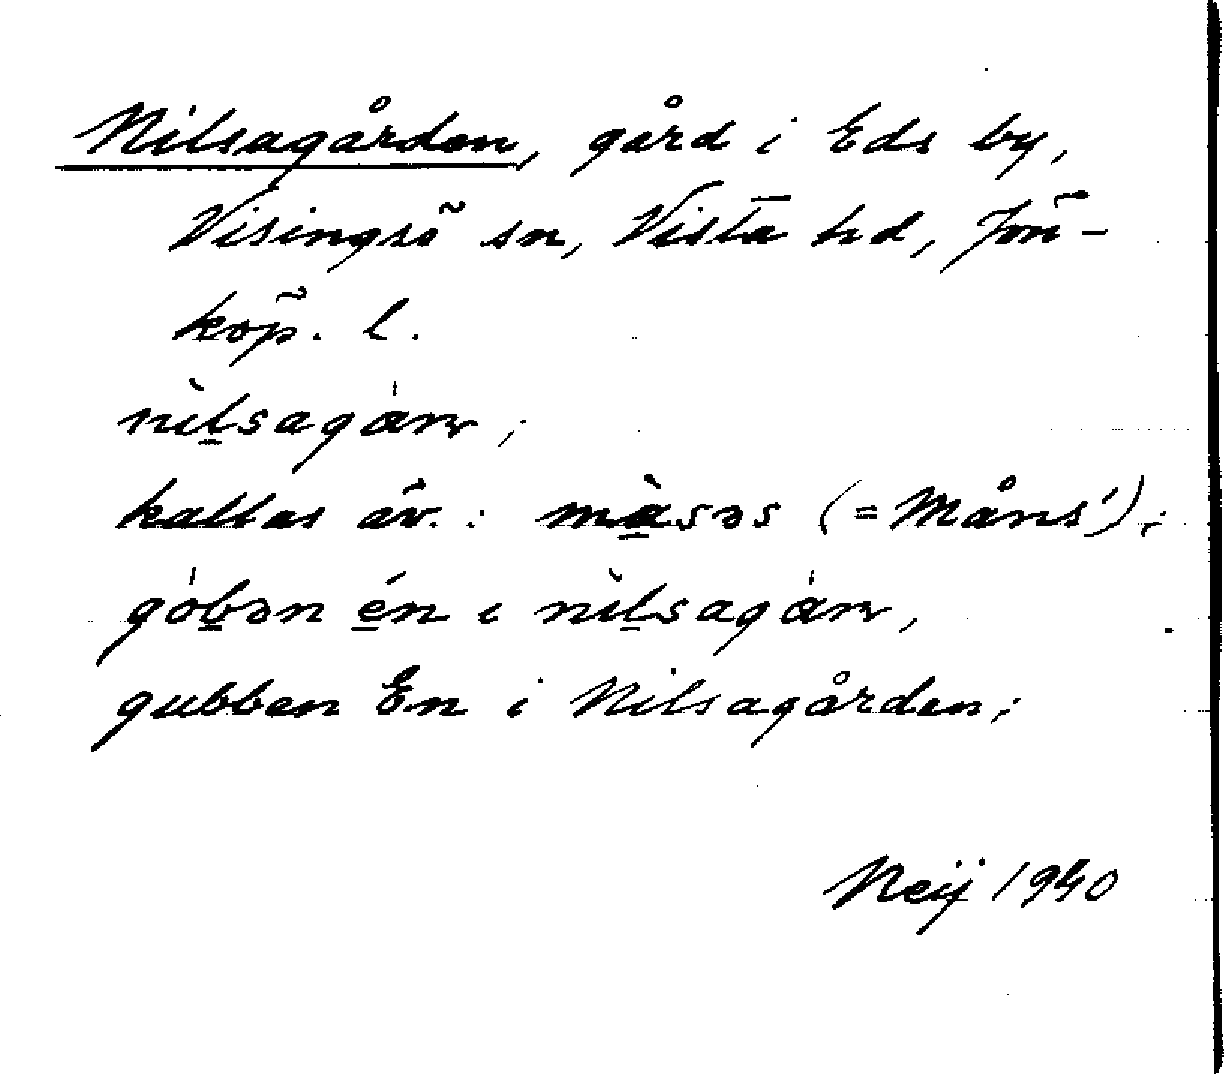 Nilsagården, gård i Eds by,
Visingsö sn, Vista hd, Jön-
köp. l.
nìl̲sagȧrn,
kallas äv. : mà̲səs (=Måns');
gòb̲ən é̲n i nìl̲sagȧrn,
gubben En i Nilsagården;
Neij 1940